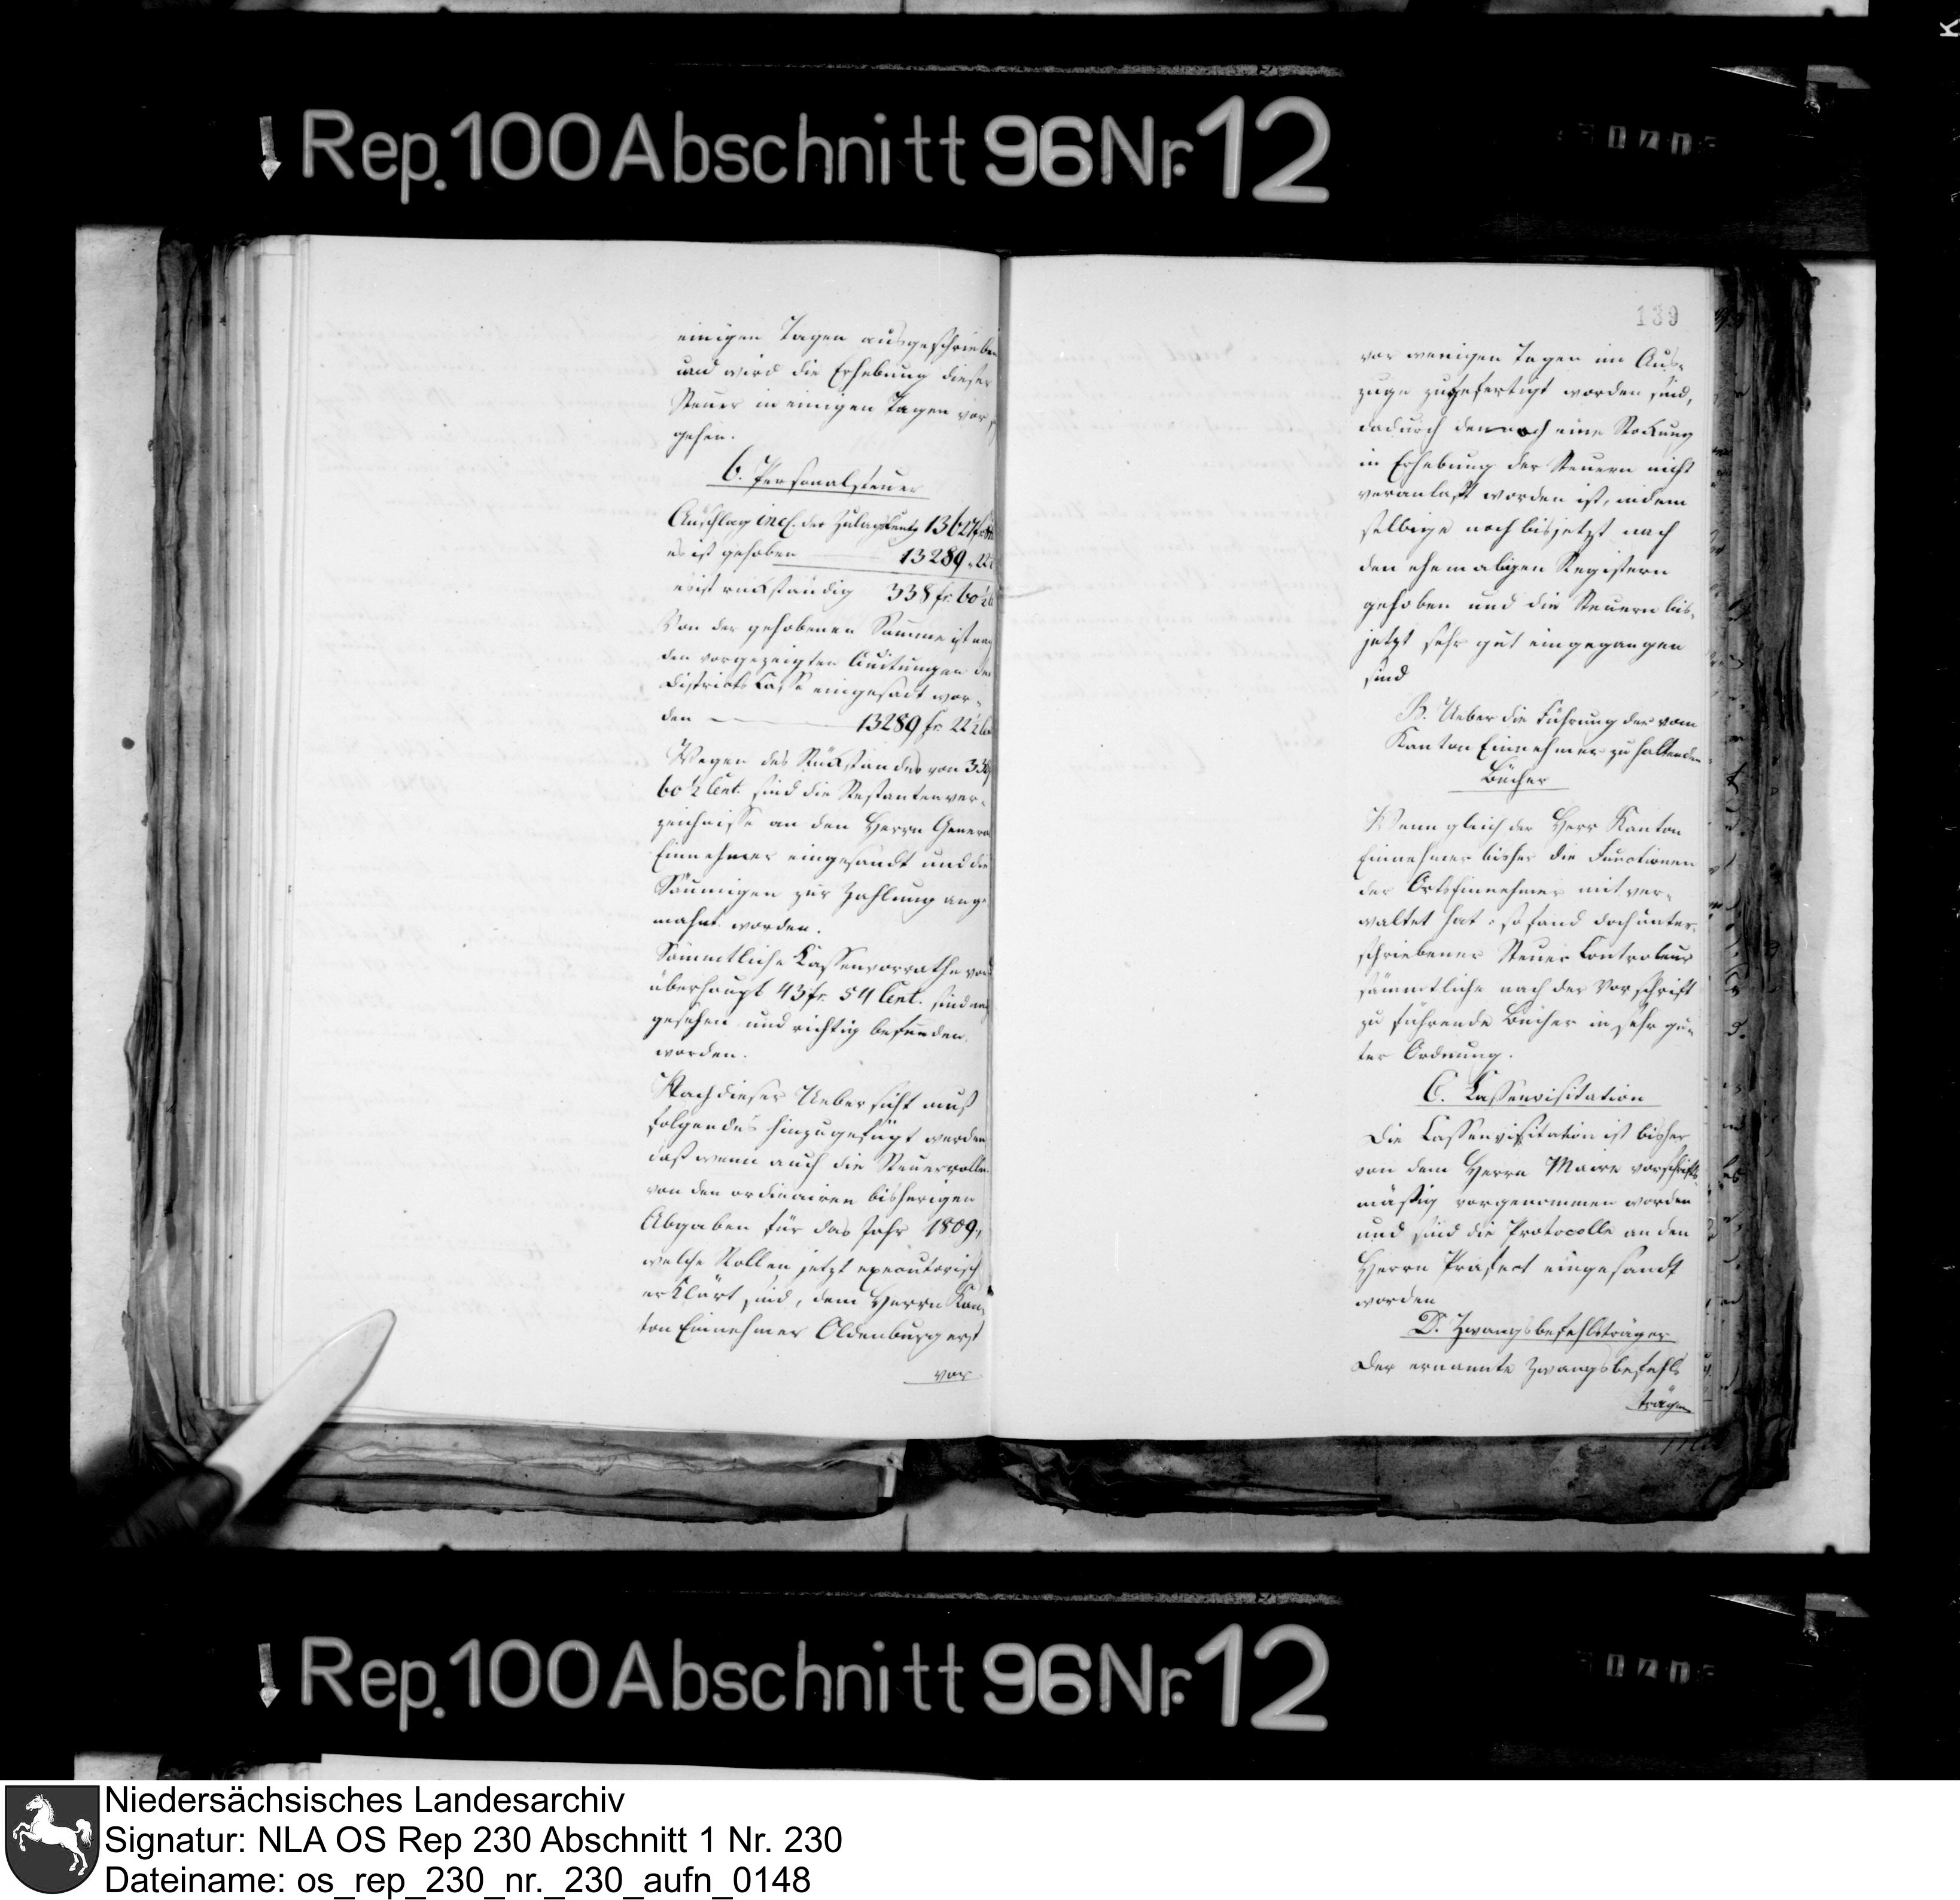 Rep. 100 Abschnitt 96 Nr. 12
einigen Tagen ausgeschrieben
und wird die Erhebung dieser
Steuer in einigen Tagen vor
gehen.
6. Personalsteuer
Anschlag incl. der Zulagscents 13627 fr
es ist gehoben 13289 „ 22½
es ist rückständig 338 fr. 60½
Von der gehobenen Summe ist nach
den vorgezeigten Quitungen der
Districts Casse eingesandt wor-
den 13289 fr. 22½
Wegen des Rückstandes von 338
60½ Cent. sind die Restantenver-
zeichnisse an den Herrn General
Einnehmer eingesandt und die
Säumigen zur Zahlung ange
mahnt worden.
Sämmtliche Cassenvorräthe von
überhaupt 43 fr. 54 Cent. sind nach
gesehen und richtig befunden
worden.
Nach dieser Uebersicht muß
folgendes hinzugefügt werden
daß wenn auch die Steuerrollen
von den ordinairen bisherigen
Abgaben für das Jahr 1809,
welche Rollen jetzt executorisch
erklärt sind, dem Herrn Kan-
ton Einnehmer Oldenburg erst
vor
139
vor wenigen Tagen im Aus-
zuge zugefertigt worden sind,
dadurch dennoch eine Stockung
in Erhebung der Steuern nicht
veranlaßt worden ist, indem
selbige noch bis jetzt nach
den ehemaligen Registern
gehoben und die Steuern bis-
jetzt sehr gut eingegangen
sind
B. Ueber die Führung der vom
Kanton Einnehmer zu haltenden
Bücher
Wenn gleich der Herr Kanton
Einnehmer bisher die Functionen
der Ortseinnehmer mit ver-
waltet hat: so fand doch unter-
schriebener Steuer Controleur
sämmtliche nach der Vorschrift
zu führende Bücher in sehr gu-
ter Ordnung.
C. Cassenvisitation
Die Cassenvisitation ist bisher
von dem Herrn Maire vorschrifts
mäßig vorgenommen worden
und sind die Protocolle an den
Herrn Präfect eingesandt
worden
D. Zwangsbefehlsträger
Der ernannte Zwangsbefehls
träger
Rep. 100 Abschnitt 96 Nr. 12
Niedersächsisches Landesarchiv
Signatur: NLA OS Rep 230 Abschnitt 1 Nr. 230
Dateiname: os_rep_230_nr._230_aufn_0148